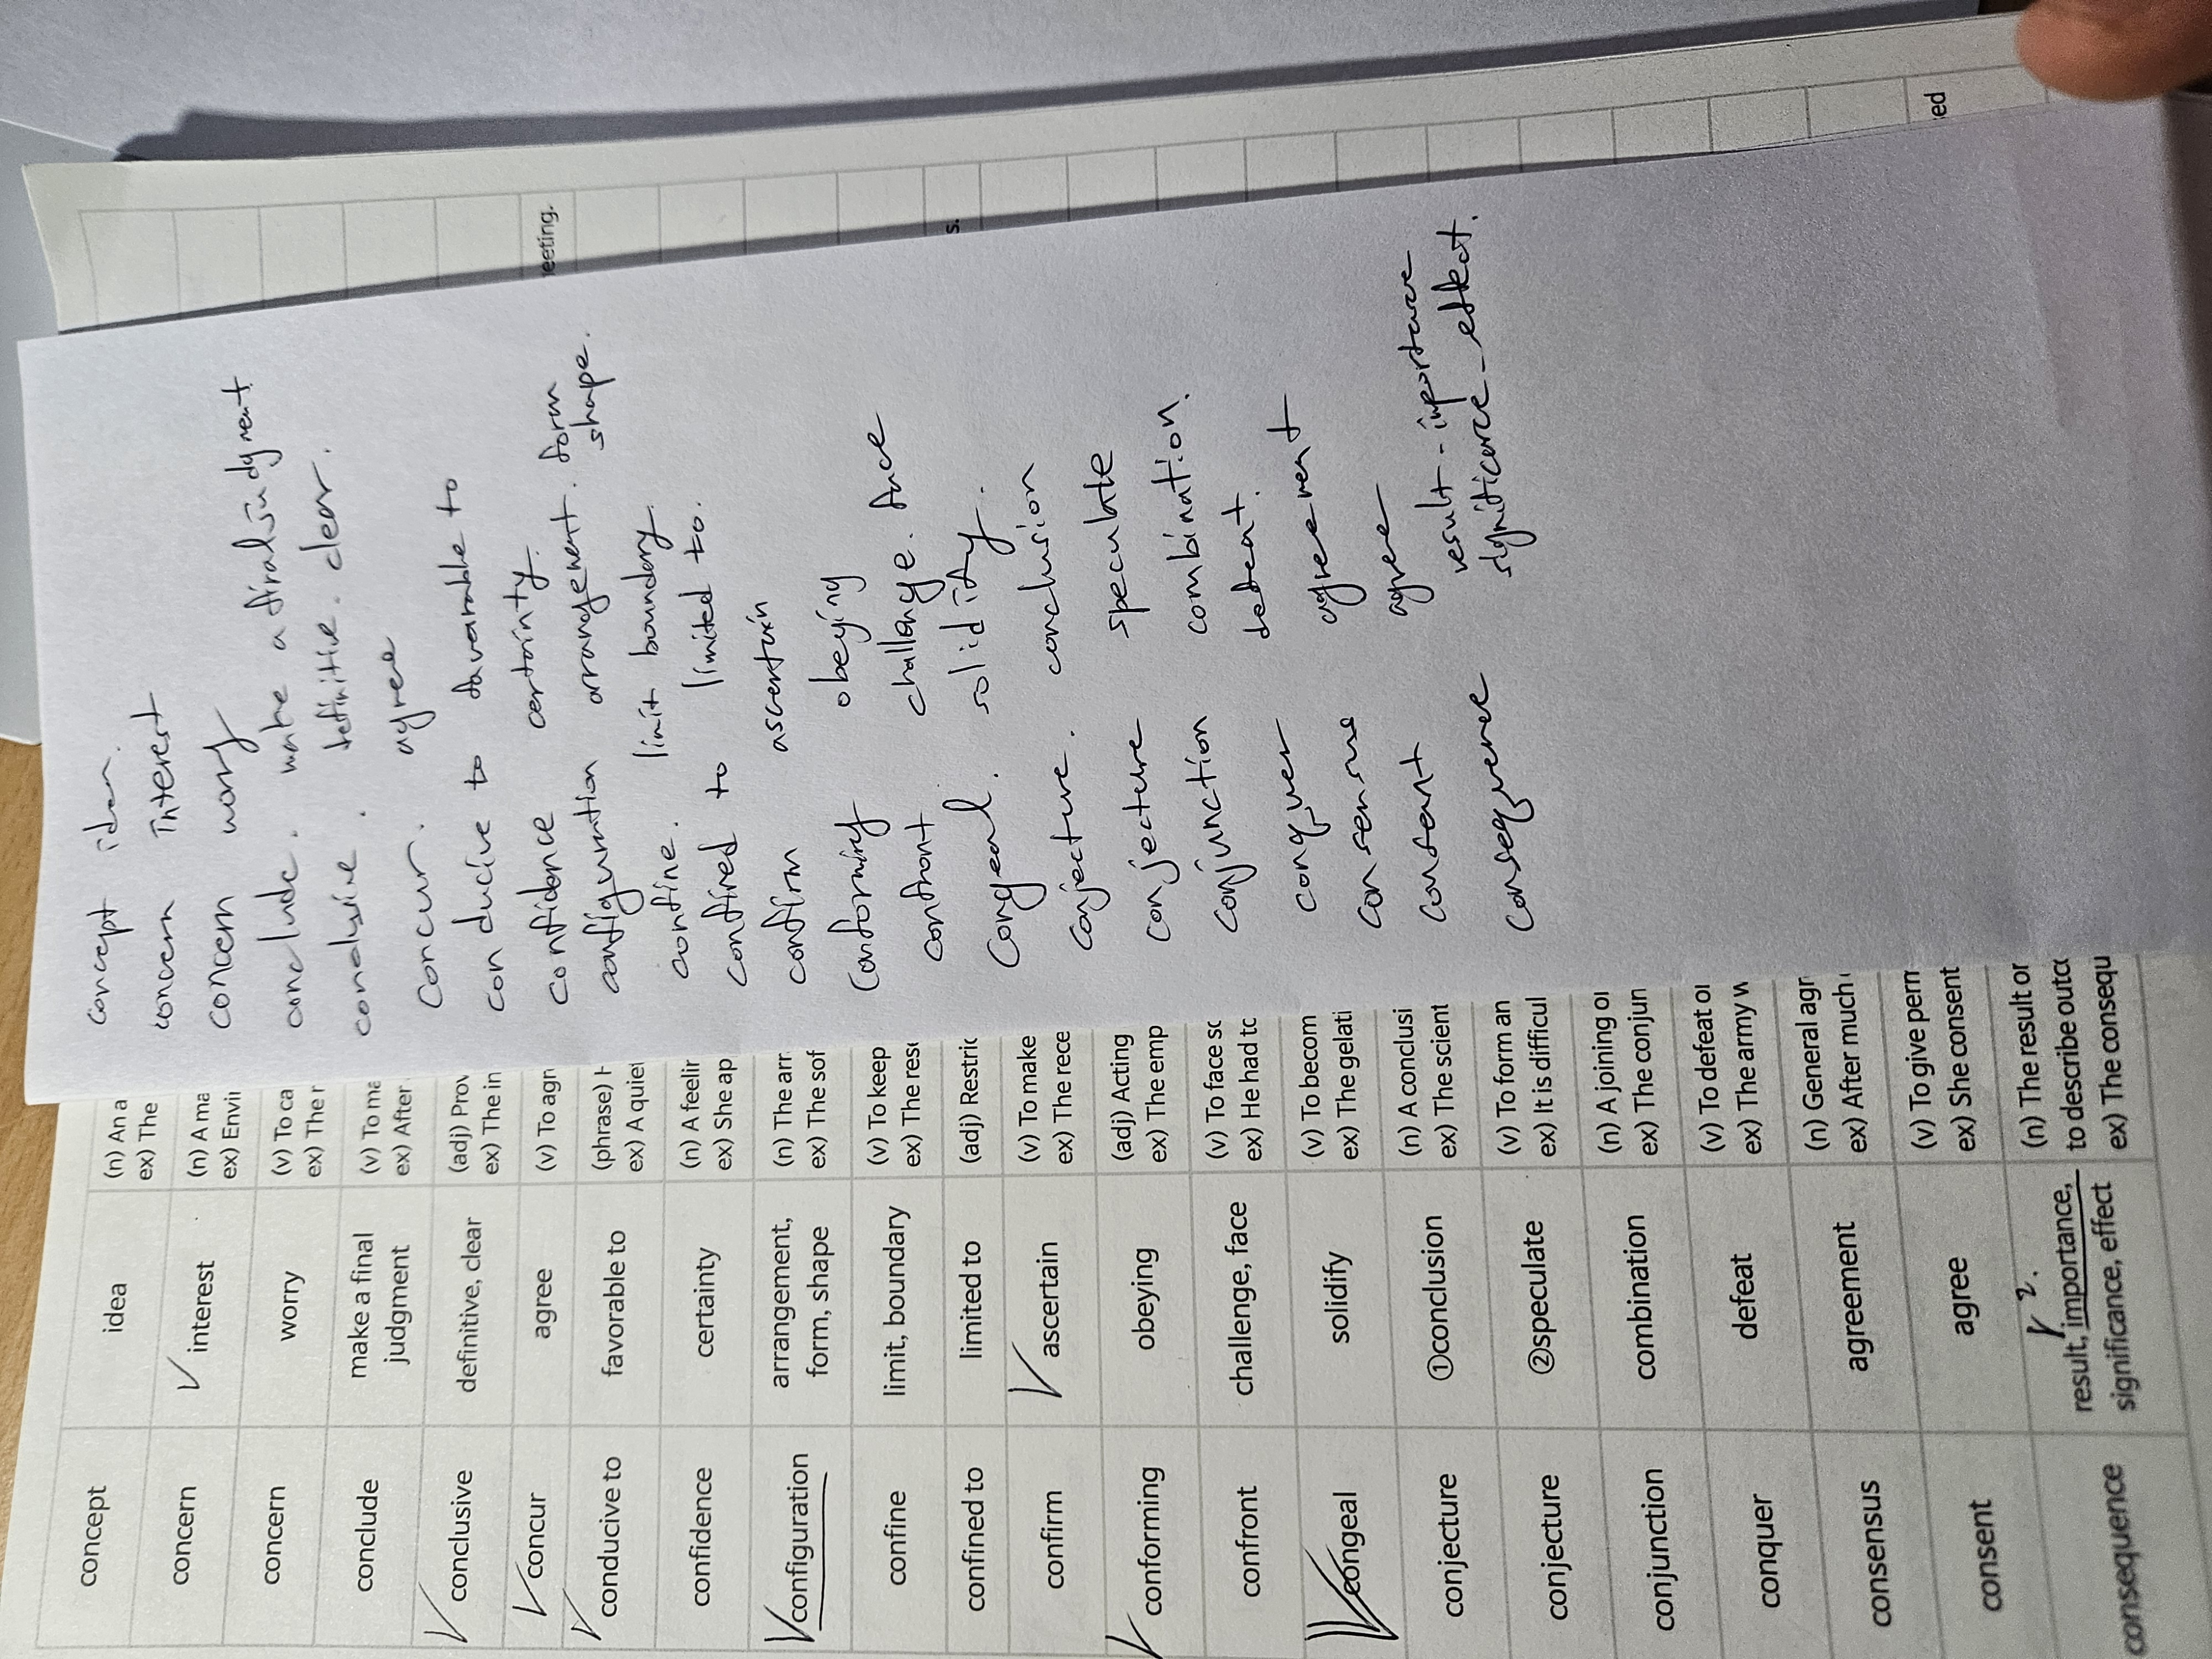 concept idea (n) An a
ex) The
concern interest (n) A ma
ex) Envir
concern worry (v) To ca
ex) The r
conclude make a final (v) To ma
judgment ex) After
conclusive definitive, clear (adj) Prov
ex) The in
concur agree (v) To agr
conducive to favorable to (phrase) H
ex) A quiet
confidence certainty (n) A feelin
ex) She ap
configuration arrangement, (n) The arr
form, shape ex) The sof
confine limit, boundary (v) To keep
ex) The rese
confined to limited to (adj) Restric
confirm ascertain (v) To make
ex) The rece
conforming obeying (adj) Acting
ex) The emp
confront challenge, face (v) To face so
ex) He had to
congeal solidify (v) To becom
ex) The gelati
conjecture ①conclusion (n) A conclusi
ex) The scient
conjecture ②speculate (v) To form an
ex) It is difficul
conjunction combination (n) A joining or
ex) The conjun
conquer defeat (v) To defeat or
ex) The army w
consensus agreement (n) General agr
ex) After much
consent agree (v) To give perm
ex) She consent
2.
consequence result, importance, (n) The result or
significance, effect to describe outco
ex) The consequ
concept idea.
concern interest
concern worry
conclude. make a final judgment
conclusive. definitive. clear.
concur. agree
conducive to favorable to
confidence certainty.
configuration arrangement. form
shape.
confine. limit boundary.
confined to limited to.
confirm ascertain
conforming obeying
confront challange. face
congeal. solidify.
conjecture. conclusion
conjecture speculate
conjunction combination.
conquer defeat.
consensus agreement
consent agree
consequence result - importance
significance - effect.
eeting.
s.
ed